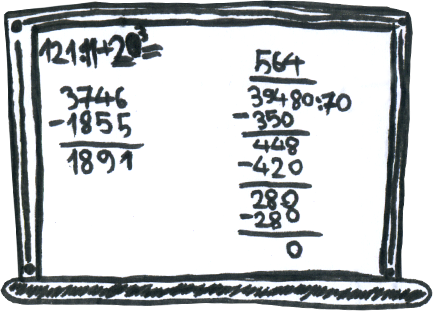 121:11+20³=
3746
-1855
1891
564
39480:70
-350
448
-420
280
-280
0